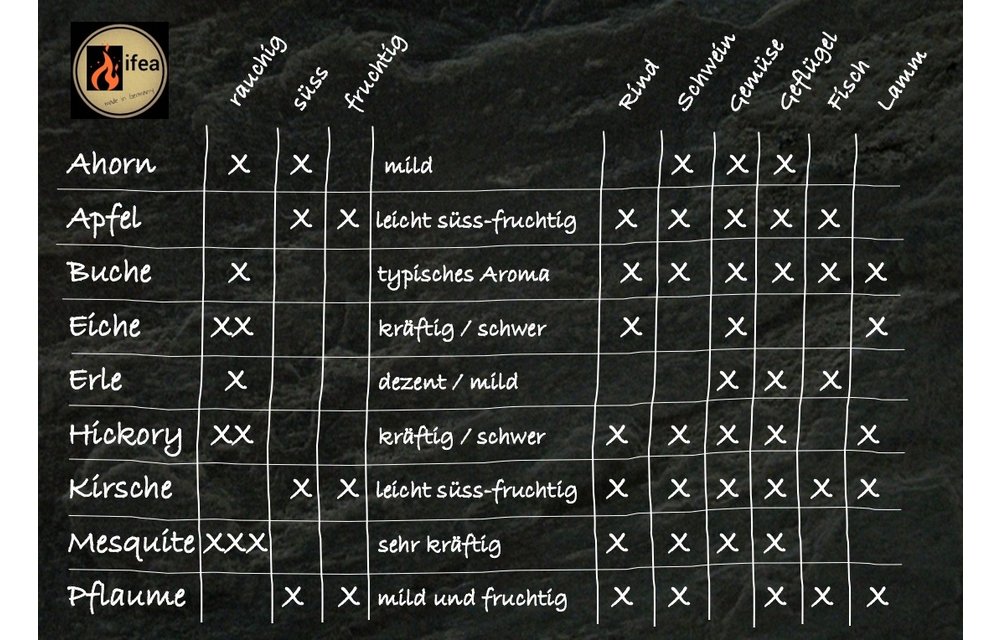 ifea
made in Germany
rauchig süss fruchtig Rind Schwein Gemüse Geflügel Fisch Lamm
Ahorn X X mild X X X
Apfel X X leicht süss-fruchtig X X X X X
Buche X typisches Aroma X X X X X X
Eiche XX kräftig / schwer X X X
Erle X dezent / mild X X X
Hickory XX kräftig / schwer X X X X X
Kirsche X X leicht süss-fruchtig X X X X X X
Mesquite XXX sehr kräftig X X X X
Pflaume X X mild und fruchtig X X X X X